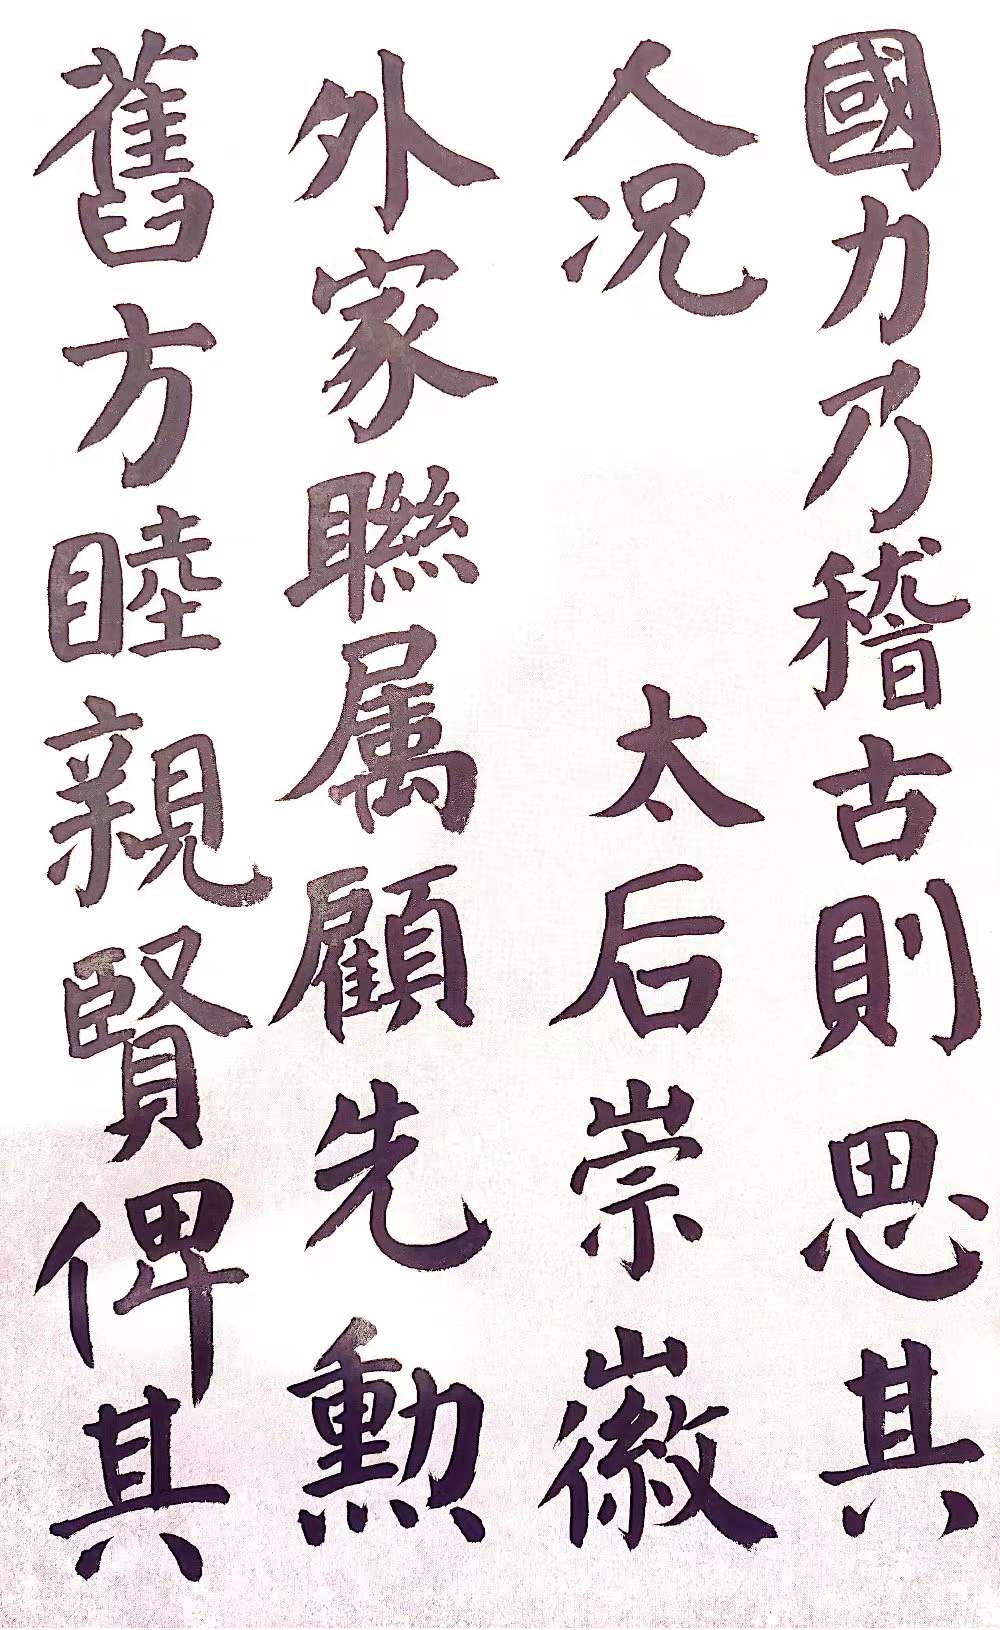 國力乃稽古則思其
人况太后崇徽
外家聯属顧先勳
舊方睦親賢俾其